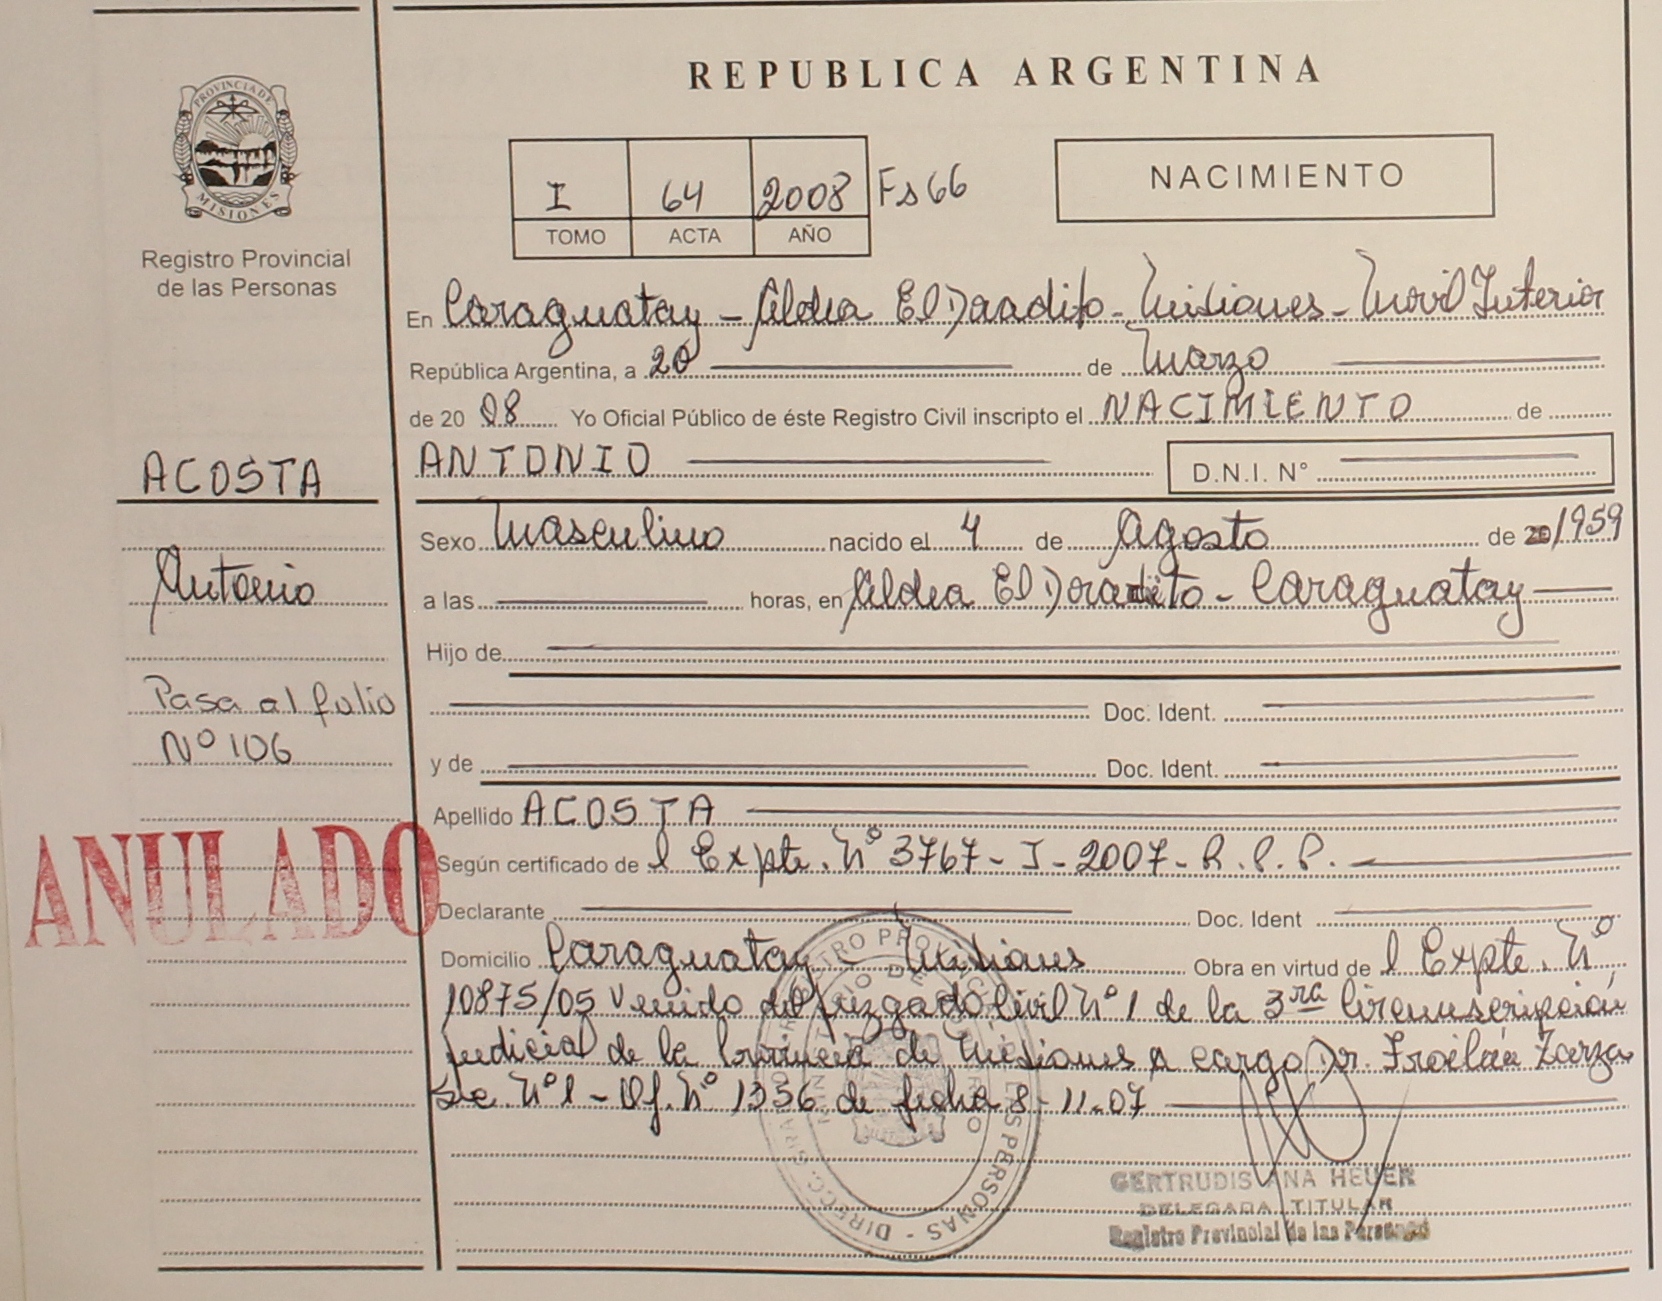 REPUBLICA ARGENTINA
PROVINCIA DE
MISIONES
Registro Provincial
de las Personas
I 64 2008 Fs 66
TOMO ACTA AÑO
NACIMIENTO
En Caraguatay - Aldea El Doradito - Misiones - Movil Interior
República Argentina, a 20 de Marzo
de 20 08 Yo Oficial Público de éste Registro Civil inscripto el NACIMIENTO de
ACOSTA
ANTONIO D.N.I. N°
Sexo Masculino nacido el 4 de Agosto de 20/1959
Antonio
a las horas, en Aldea El Doradito - Caraguatay
Hijo de
Pasa al folio
Nº 106
Doc. Ident.
y de Doc. Ident.
Apellido ACOSTA
ANULADO
Según certificado de l Expte. Nº 3767 - I - 2007 - R. P. P.
Declarante Doc. Ident
Domicilio Caraguatay - Misiones Obra en virtud de l Expte. Nº
10875/05 Venido del Juzgado Civil Nº 1 de la 3ra Circunscripción
Judicial de la Provincia de Misiones a cargo Dr. Froilán Zarza
Sec. Nº 1 - Of. Nº 1336 de fecha 8-11-07
GERTRUDIS ANA HEUER
DELEGADA TITULAR
Registro Provincial de las Personas